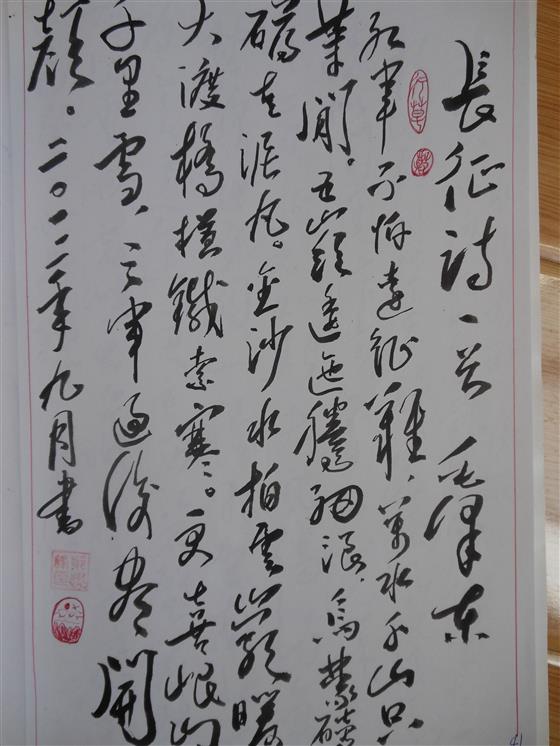 長征诗一首 毛澤东
行草
红军不怕遠征難，萬水千山只
等闲。五嶺逶迤騰细浪，烏蒙磅
礴走泥丸。金沙水拍雲崖暖
大渡橋横鐵索寒。更喜岷山
千里雪，三军過後盡開
颜。二〇一二年九月書